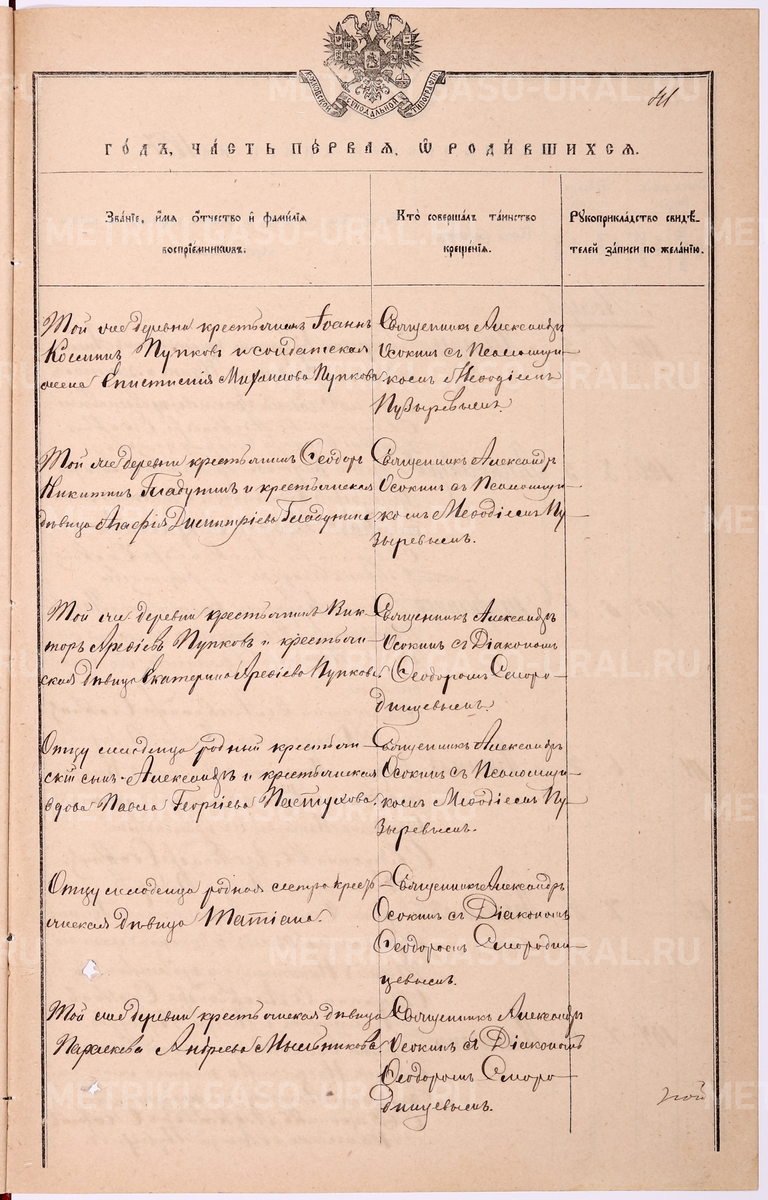 МОСКОВСКОЙ СѴНОДАЛЬНОЙ ТИПОГРАФІИ
ГО́ДЪ, ЧА́СТЬ ПЕ́РВАЯ, Ѡ҆ РОДИ́ВШИХСЯ.
Зва́нїе, и҆́мя ѻ҆́тчество и҆ фами́лїя
воспрїе́мниковъ.
Кто̀ соверша́лъ та́инство
креще́нїя.
Рꙋкоприкла́дство свидѣ́-
телей за́писи по жела́нїю.
Той же деревни крестьянинъ Іоаннъ
Косминъ Пупковъ и солдатская
жена Епистимія Михаилова Пупкова
Священникъ Александръ
Осокинъ съ Псаломщи-
комъ Меѳодіемъ
Пузыревымъ.
Той же деревни крестьянинъ Ѳеодоръ
Никитинъ Гладунинъ и крестьянская
дѣвица Агафія Димитріева Гладунина
Священникъ Александръ
Осокинъ съ Псаломщи-
комъ Меѳодіемъ Пу-
зыревымъ.
Той же деревни крестьянинъ Вик-
торъ Арефіевъ Пупковъ и крестьян-
ская дѣвица Екатерина Арефіева Пупкова.
Священникъ Александръ
Осокинъ съ Діакономъ
Ѳеодоромъ Сморо-
динцевымъ.
Отцу младенца родный крестьян-
скій сынъ Александръ и крестьянская
вдова Павла Георгіева Пастухова.
Священникъ Александръ
Осокинъ съ Псаломщи-
комъ Меѳодіемъ Пу-
зыревымъ.
Отцу младенца родная сестра кресть-
янская дѣвица Татіана.
Священникъ Александръ
Осокинъ съ Діакономъ
Ѳеодоромъ Смородин-
цевымъ.
Той же деревни крестьянская дѣвица
Параскева Андреева Мыльникова.
Священникъ Александръ
Осокинъ съ Діакономъ
Ѳеодоромъ Сморо-
динцевымъ.
METRIKI.GASO-URAL.RU